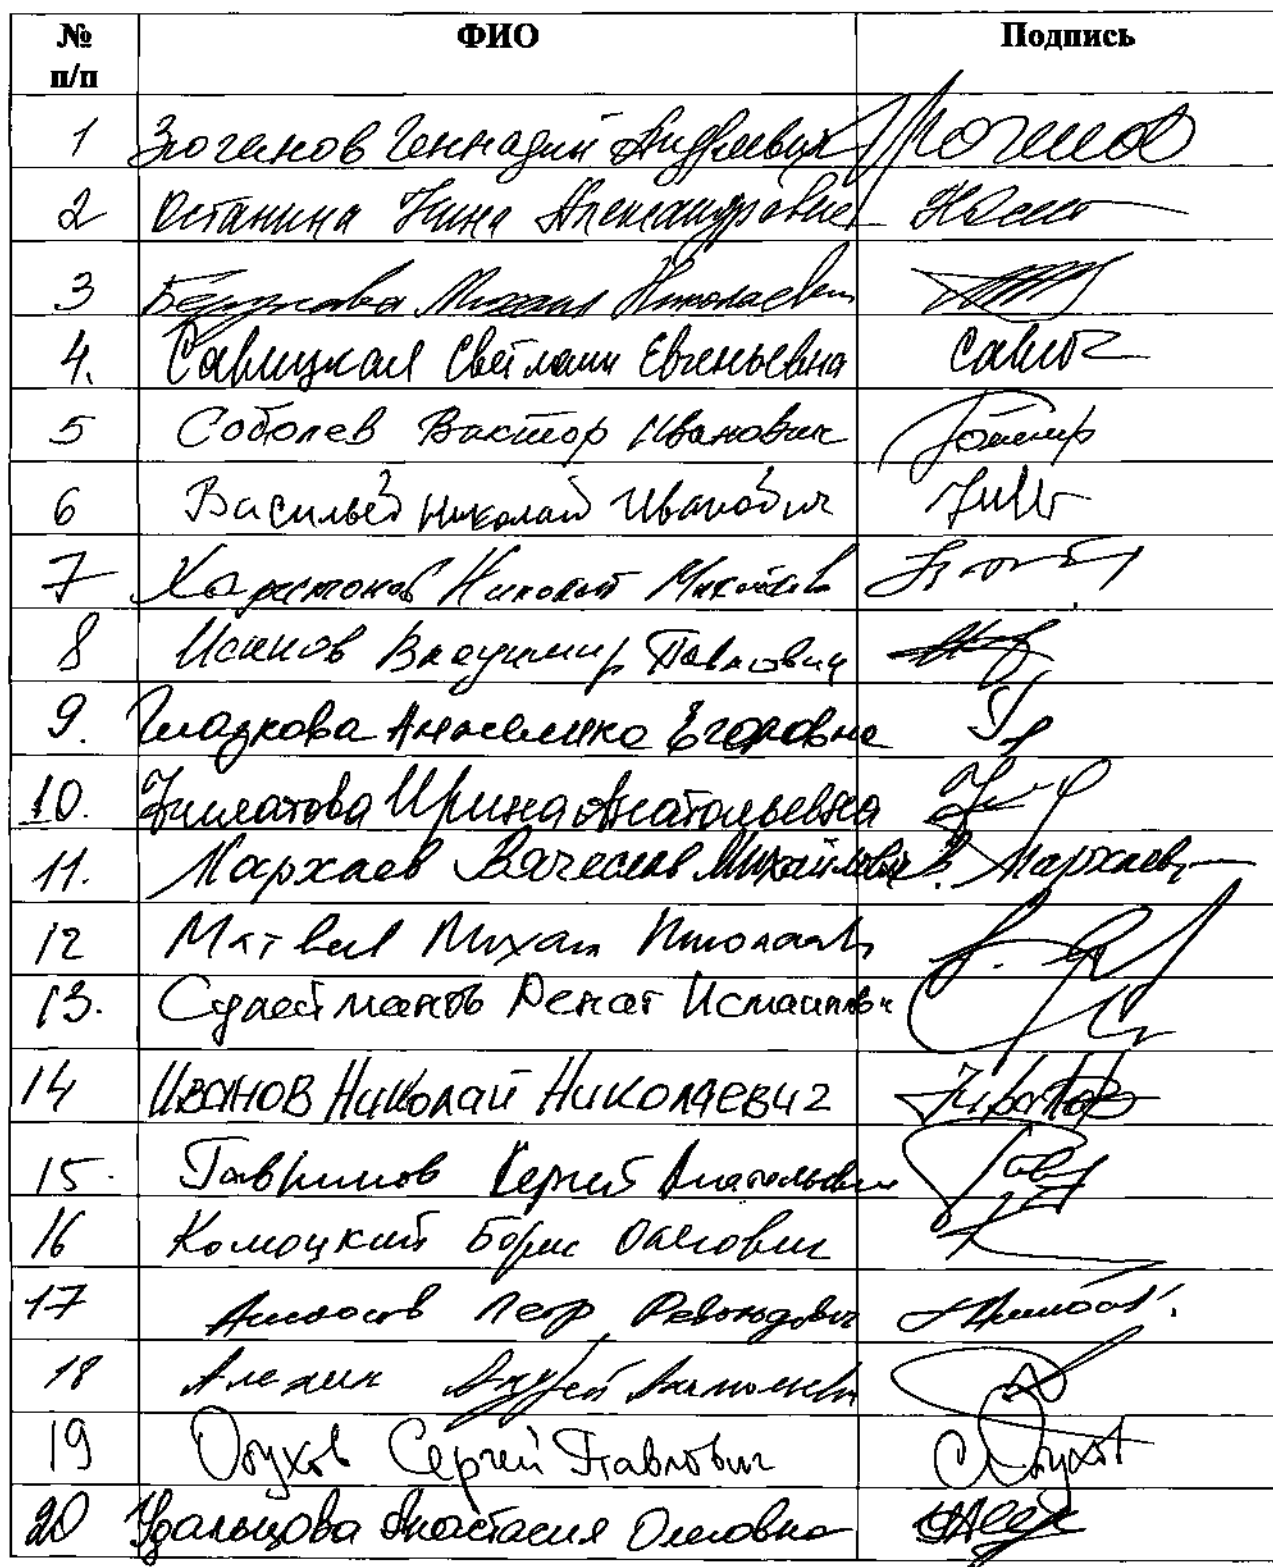 № п/п ФИО Подпись
1 Зюганов Геннадий Андреевич Зюганов
2 Останина Нина Александровна
3 Михаил Николаевич
4. Савицкая Светлана Евгеньевна Савиц
5 Соболев Виктор Иванович
6 Васильев Николай Иванович
7 Харитонов Николай Михайлов
8 Исаков Владимир Павлович
9. Глазкова Анжелика Егоровна Гл
10. Филатова Ирина Анатольевна
11. Мархаев Вячеслав Михайлович В. Мархаев
12 Матвеев Михаил Николаев
13. Сулейманов Ренат Исмаилович
14 Иванов Николай Николаевич НИванов
15. Гаврилов Сергей Анатольевич Гав
16 Комоцкий Борис Олегович
17 Аммосов Петр Револьдович Аммосов
18 Алехин Андрей Анатольевич
19 Обухов Сергей Павлович СОбухов
20 Удальцова Анастасия Олеговна